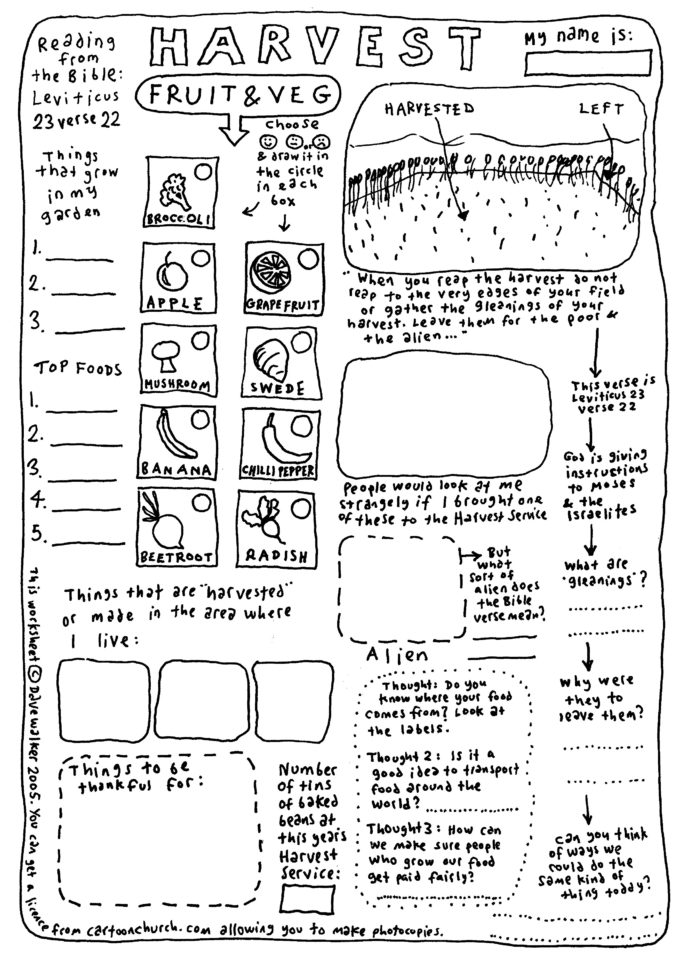 HARVEST
My name is:
Reading
from
the Bible:
Leviticus
23 verse 22
FRUIT & VEG
choose
or
& draw it in
the circle
in each
box
Things
that grow
in my
garden
1.
2.
3.
TOP FOODS
1.
2.
3.
4.
5.
BROCCOLI
APPLE
GRAPEFRUIT
MUSHROOM
SWEDE
BANANA
CHILLI PEPPER
BEETROOT
RADISH
HARVESTED
LEFT
"When you reap the harvest do not
reap to the very edges of your field
or gather the gleanings of your
harvest. Leave them for the poor &
the alien..."
This verse is
Leviticus 23
verse 22
God is giving
instructions
to Moses
& the
Israelites
What are
"gleanings"?
Why were
they to
leave them?
Can you think
of ways we
could do the
same kind of
thing today?
People would look at me
strangely if I brought one
of these to the Harvest Service
But
what
sort of
alien does
the Bible
verse mean?
Alien
Thought: Do you
know where your food
comes from? Look at
the labels.
Thought 2: Is it a
good idea to transport
food around the
world?
Thought 3: How can
we make sure people
who grow our food
get paid fairly?
Things that are "harvested"
or made in the area where
I live:
Things to be
thankful for:
Number
of tins
of baked
beans at
this years
Harvest
Service:
This worksheet © Dave Walker 2005. You can get a licence
from cartoonchurch.com allowing you to make photocopies.